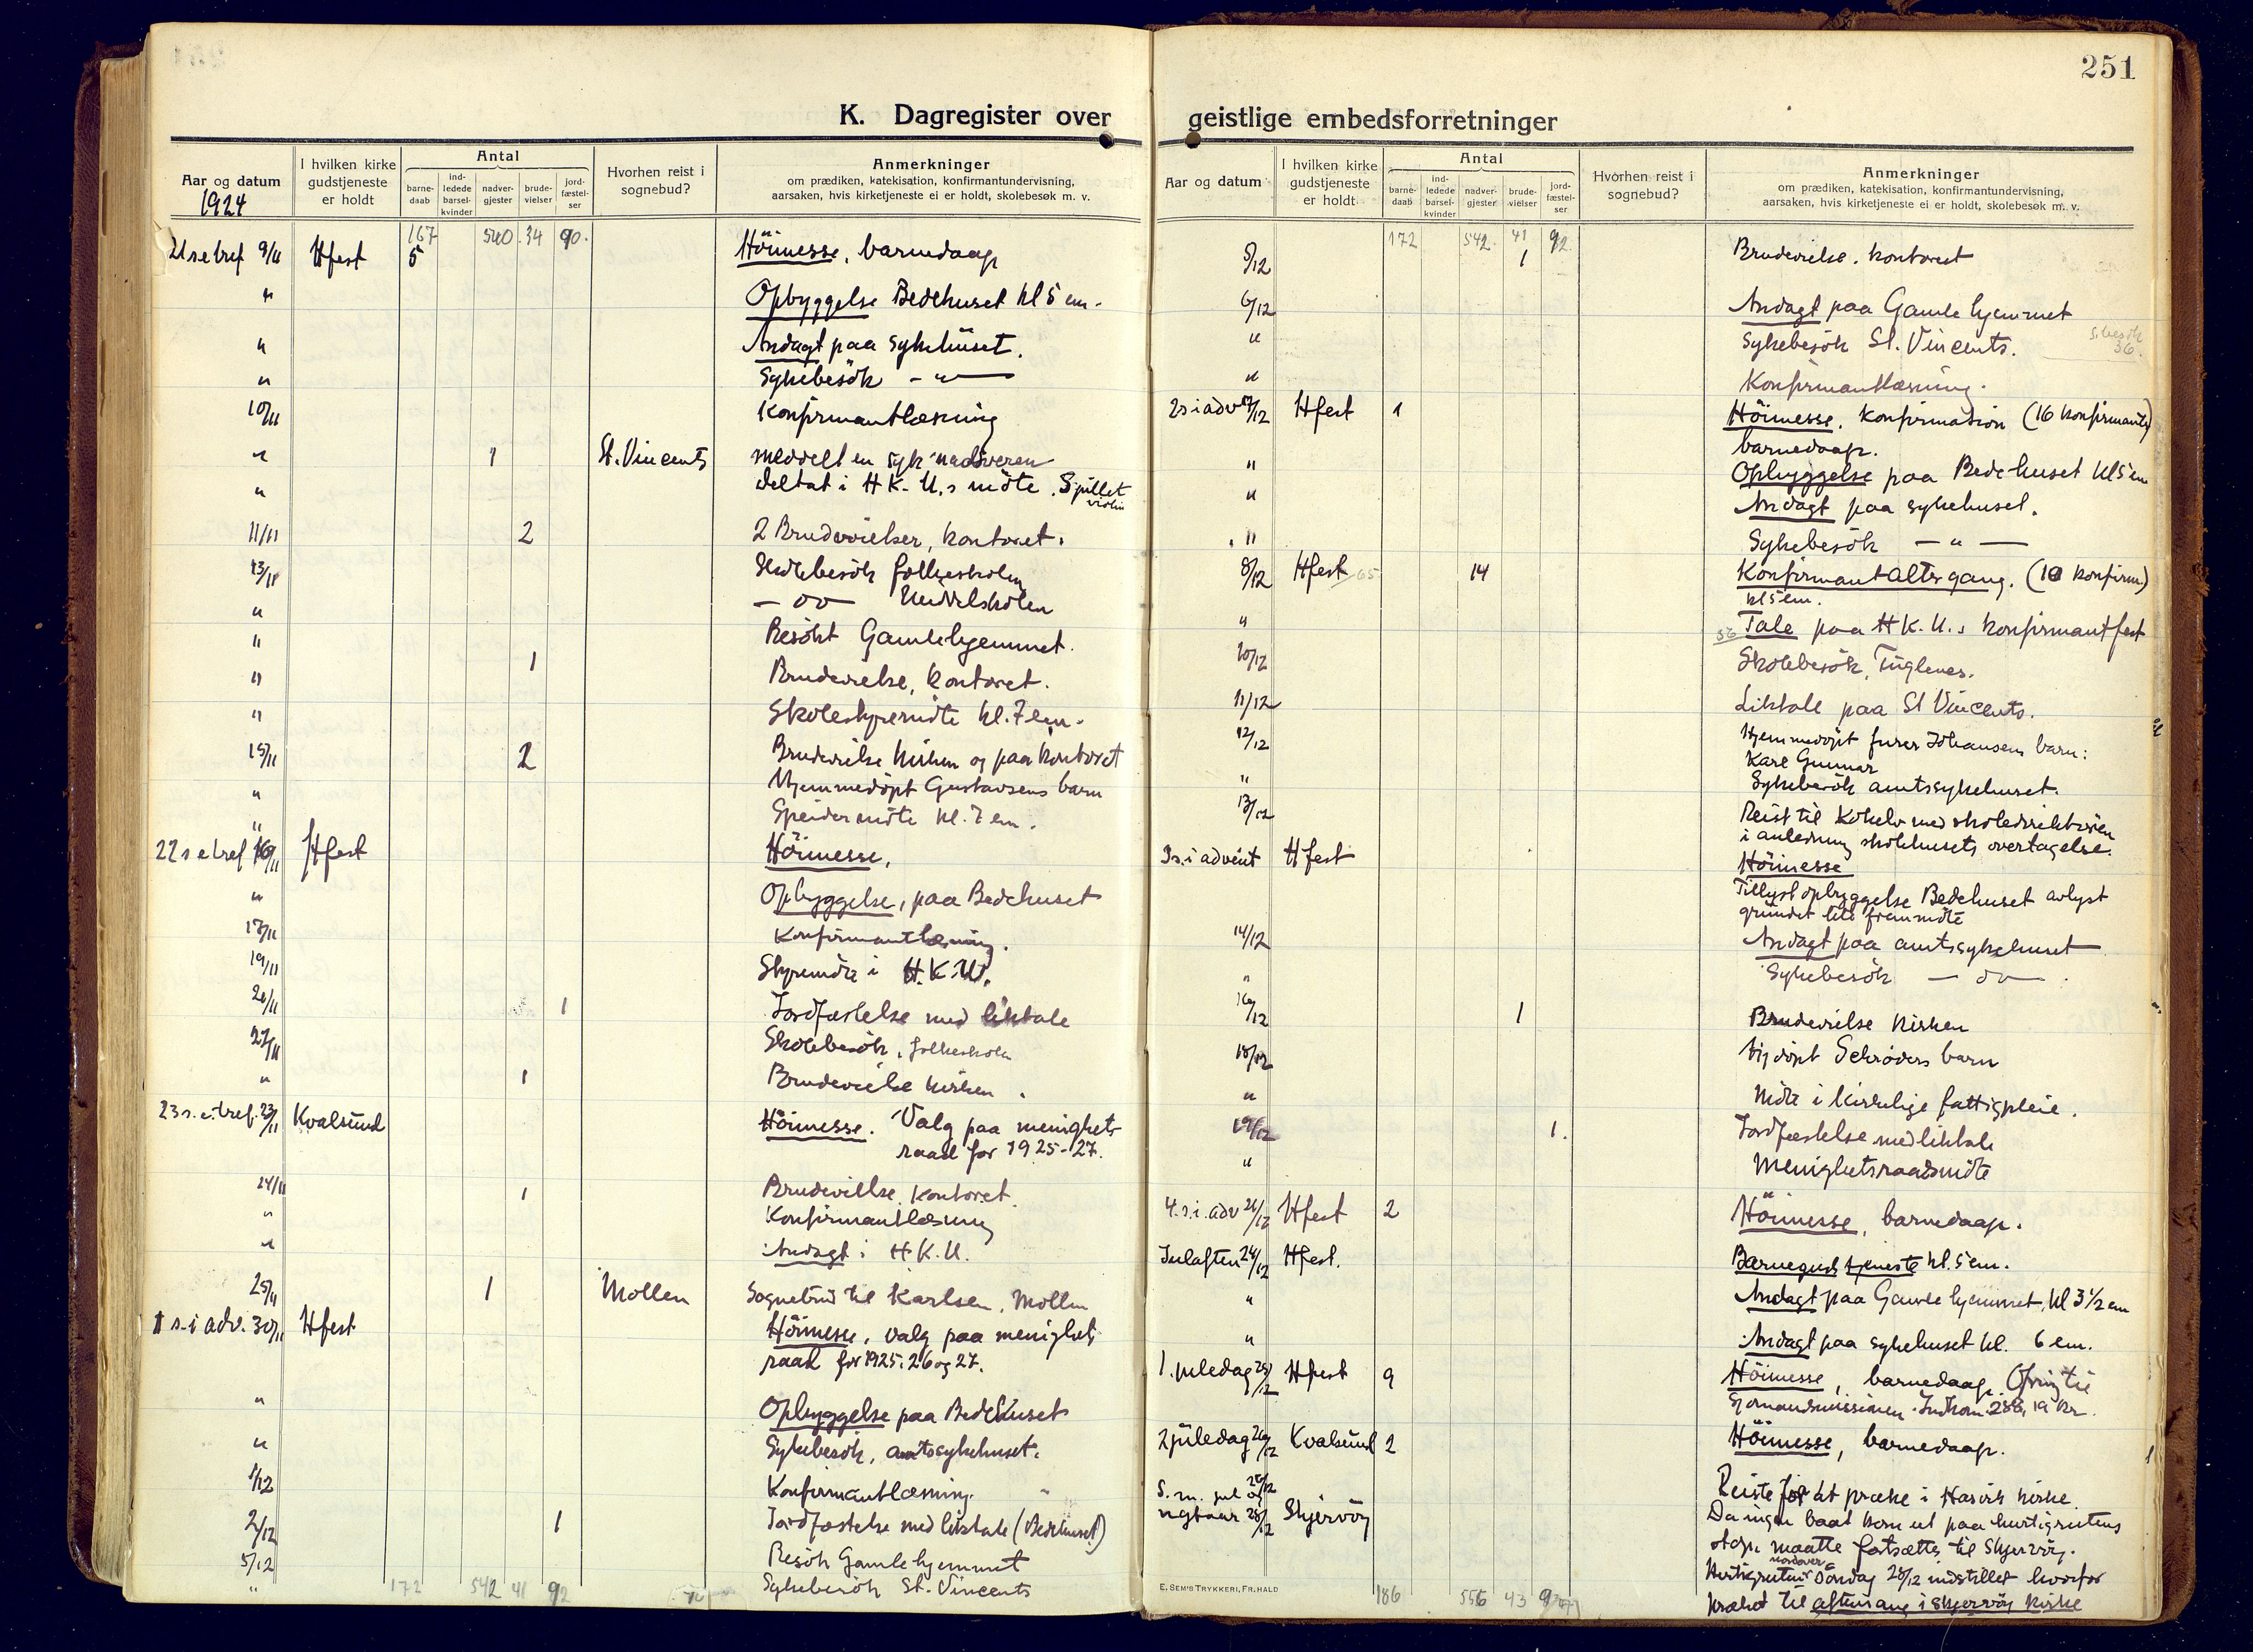 251
K. Dagregister over geistlige embedsforretninger
Aar og datum
1924
I hvilken kirke gudstjeneste er holdt
Antal
barne-daab
ind-ledede barsel-kvinder
nadver-gjester
brude-vielser
jord-fæstel-ser
Hvorhen reist i sognebud?
Anmerkninger
om prædiken, katekisation, konfirmantundervisning,
aarsaken, hvis kirketjeneste ei er holdt, skolebesøk m. v.
167 540 34 90
21 s e tref 9/11 Hfest 5 Höimesse, barnedaap
" Opbyggelse Bedehuset kl 5 em.
" Andagt paa sykehuset.
" Sykebesök - " -
10/11 Konfirmantlæsning
" 1 St. Vincents meddelt en syk nadveren
" deltat i H K. U.s möte. Spillet violin
11/11 2 2 Brudevielser, kontoret.
13/11 Skolebesök folkeskolen
" - do - Middelskolen
" Besökt Gamlehjemmet.
" 1 Brudevielse, kontoret.
" Skolestyremöte kl. 7 em.
15/11 2 Brudevielse kirken og paa kontoret
" Hjemmedöpt Gustavsens barn
" Speidermöte kl. 7 em.
22 s e tref 16/11 Hfest Höimesse.
" Opbyggelse, paa Bedehuset
17/11 Konfirmantlæsning.
19/11 Styremöte i H.K.U.
20/11 1 Jordfæstelse med liktale
Skolebesök, folkeskolen
" 1 Brudevielse kirken.
23 s. e. tref. 23/11 Kvalsund Höimesse. Valg paa menighets-
raad for 1925-27.
24/11 1 Brudevielse kontoret.
" Konfirmantlæsning
" Andagt i H K. U.
25/11 1 Mollen Sognebud til Karlsen, Mollen
1 s. i adv. 30/11 Hfest Höimesse, valg paa menighets
raad for 1925. 26 og 27.
" Opbyggelse paa Bedehuset
" Sykebesök, amtssykehuset.
1/12 Konfirmantlæsning.
2/12 1 Jordfæstelse med liktale (Bedehuset)
5/12 Besök Gamlehjemmet
" Sykebesök St. Vincents
172 542 41 92
Aar og datum
I hvilken kirke gudstjeneste er holdt
Antal
barne-daab
ind-ledede barsel-kvinder
nadver-gjester
brude-vielser
jord-fæstel-ser
Hvorhen reist i sognebud?
Anmerkninger
om prædiken, katekisation, konfirmantundervisning,
aarsaken, hvis kirketjeneste ei er holdt, skolebesøk m. v.
172 542 41 92
5/12 1 Brudevielse. kontoret
6/12 Andagt paa Gamlehjemmet
" Sykebesök St. Vincents. S.besök 36.
" Konfirmantlæsning.
2 s i adv 7/12 Hfest 1 Höimesse. Konfirmasion (16 konfirmanter)
barnedaap.
" Opbyggelse paa Bedehuset kl 5 em
" Andagt paa sykehuset.
" Sykebesök - " -
8/12 Hfest 65 14 Konfirmantaltergang. (10 konfirm.)
kl 5 em.
" 56 Tale paa H K. U.s konfirmantfest
10/12 Skolebesök, Fuglenes.
11/12 Liktale paa St Vincents.
12/12 Hjemmedöpt furer Johansens barn:
Kare Gunnar
" Sykebesök amtssykehuset.
13/12 Reist til Kokelv med skoledirektören
i anledning skolehusets overtagelse.
3 s. i advent Hfest Höimesse
Tillyst opbyggelse Bedehuset avlyst
grundet litet fremmöte
14/12 Andagt paa amtssykehuset
" Sykebesök - do -
16/12 1 Brudevielse kirken
18/12 Hj döpt Schröders barn
" Möte i kirkelige fattigpleie.
19/12 1. Jordfæstelse med liktale
" Menighetsraadsmöte
4. s. i. adv 21/12 Hfest 2 Höimesse, barnedaap.
Julaften 24/12 Hfest. Barnegudstjeneste kl. 5 em.
" Andagt paa Gamlehjemmet, kl 3 1/2 em
" Andagt paa sykehuset kl. 6 em.
1. juledag 25/12 Hfest 9 Höimesse, barnedaap. Ofring til
Sjömandsmissionen. Indkom 286,19 kr.
2 juledag 26/12 Kvalsund 2 Höimesse, barnedaap.
S. m. jul og nytaar 28/12 Skjervöy Reiste for at præke i Hasvik kirke.
Da ingen baat kom ut paa hurtigrutens
stop, maatte fortsætte til Skjervöy.
Hurtigruten nordover Söndag 28/12 indstillet hvorfor
præket til aftensang i Skjervöy kirke
E. SEM'S TRYKKERI, FR.HALD
186 556 43 93